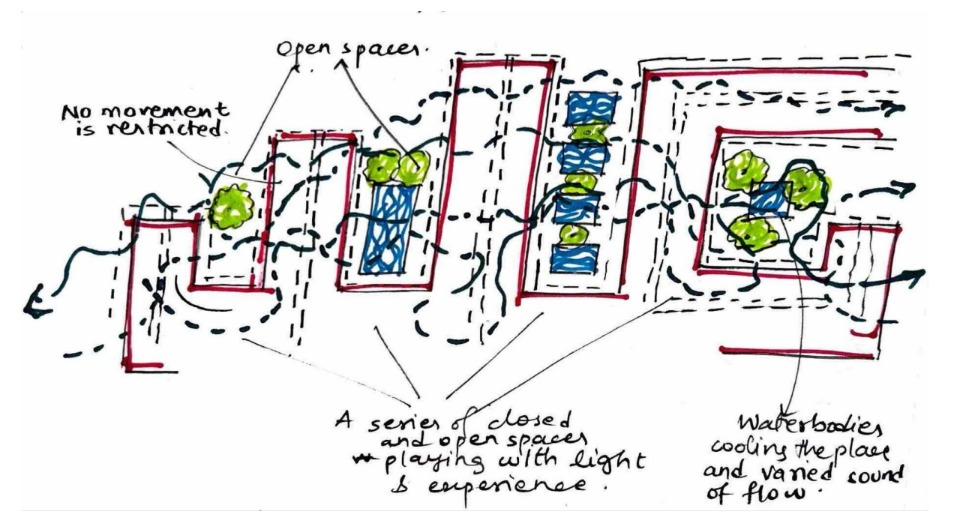 Open spaces.
No movement
is restricted.
A series of closed
and open spaces
playing with light
& experience.
Waterbodies
cooling the place
and varied sound
of flow.